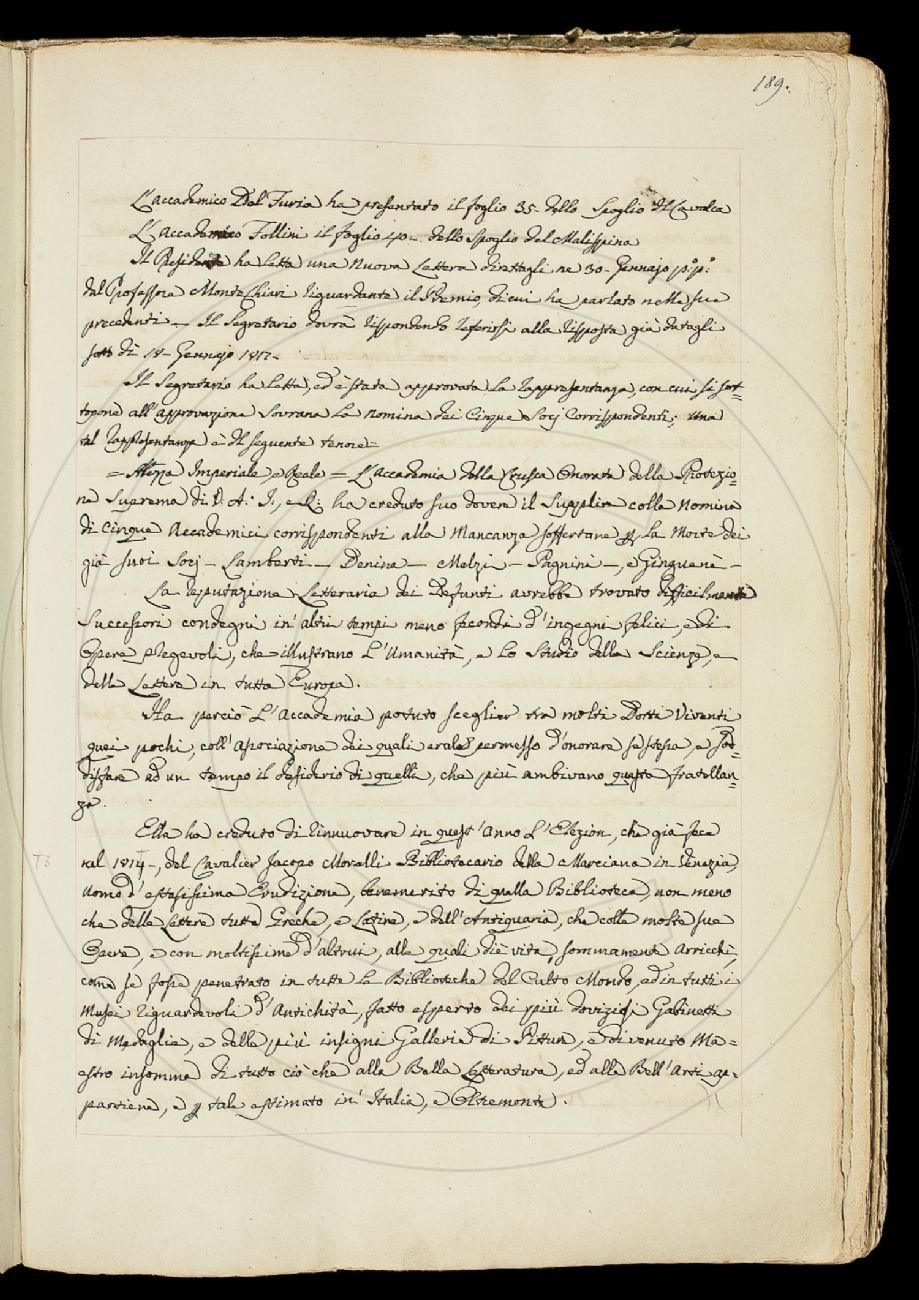 189.
L'accademico Del Furia ha presentato il foglio 35. dello Spoglio del Cavalca
L'Accademico Follini il foglio 40. dello Spoglio del Malispina
Il Presidente ha letta una nuova lettera direttagli ne 30. Gennajo p.º p.º
dal Professore Monte Chiari riguardante il Premio, di cui ha parlato nelle sue
precedenti — Il Segretario dovrà rispondendo referirsi alla risposta già datagli
sotto dì 18. Gennajo 1817.
Il Segretario ha letta, ed è stata approvata la rappresentanza, con cui si sot=
topone all'approvazione Sovrana la nomina dei Cinque Socj Corrispondenti; una
tal rappresentanza è del seguente tenore=
= Altezza Imperiale, e Reale = L'Accademia della Crusca Onorata della Protezio=
ne Suprema di V. A. I., e R. ha creduto suo dovere il supplire colla nomina
di cinque Accademici corrispondenti alla mancanza soffertane p la morte dei
già suoi Socj — Lamberti — Denina — Melzi — Pagnini —, e Ginguenè —
La reputazione Letteraria dei Defunti avrebbe trovato difficilmente
Successori condegni in altri tempi meno fecondi d'ingegni felici, e di
Opere pregevoli, che illustrano l'Umanità, e lo Studio delle Scienze, e
delle Lettere in tutta Europa.
Ha perciò L'Accademia potuto sceglier tra molti Dotti Viventi
quei pochi, coll'Associazione dei quali erale permesso d'onorare se stessa, e sod=
disfare ad un tempo il desiderio di quelli, che più ambivano questa fratellan=
za.
Ella ha creduto di rinnuovare in quest'anno L'Elezion, che già fece
nel 1814., del Cavalier Jacopo Morelli Bibliotecario della Marciana in Venezia,
Uomo d'estesissima Erudizione, benemerito di quella Biblioteca, non meno
che delle Lettere tutte Greche, e Latine, e dell'Antiquaria, che colle molte sue
Opere, e con moltissime d'altrui, alle quali diè vita, sommamente arricchì,
come se fosse penetrato in tutte le Biblioteche del Culto Mondo, ed in tutti i
Musei riguardevoli d'Antichità, fatto esperto dei più doviziosi Gabinetti
di Medaglie, e delle più insigni Gallerie di Pitture, e divenuto Ma=
estro insomma di tutto ciò che alla Bella Letteratura, ed alle Bell'Arti ap=
partiene, e p tale estimato in Italia, e Oltremonte.